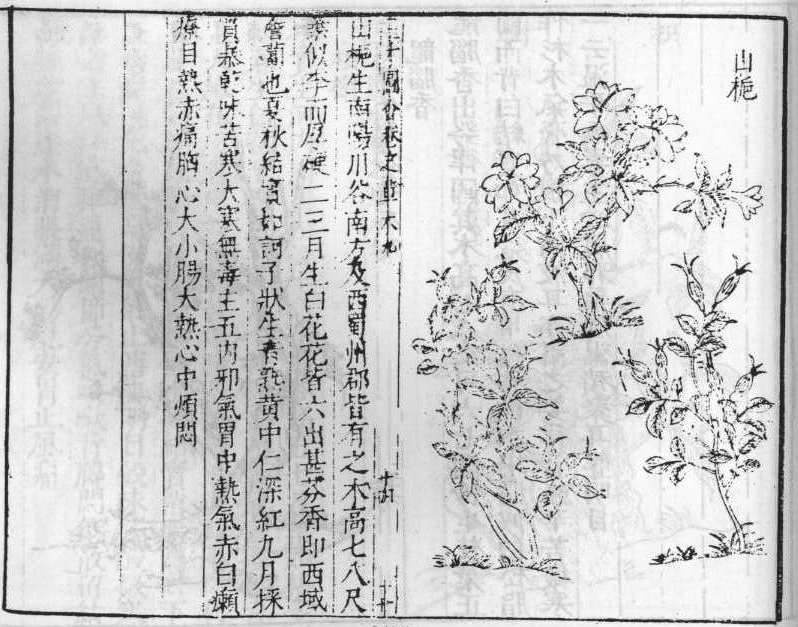 山梔
三才圖會 卷之草木九
山梔生南陽川谷南方及西蜀州郡皆有之木高七八尺
葉似李而厚硬二三月生白花花皆六出甚芬香即西域
詹蔔也夏秋結實如訶子狀生青熟黃中仁深紅九月採
實暴乾味苦寒大寒無毒主五內邪氣胃中熱氣赤白癩
療目熱赤痛胷心大小腸大熱心中煩悶